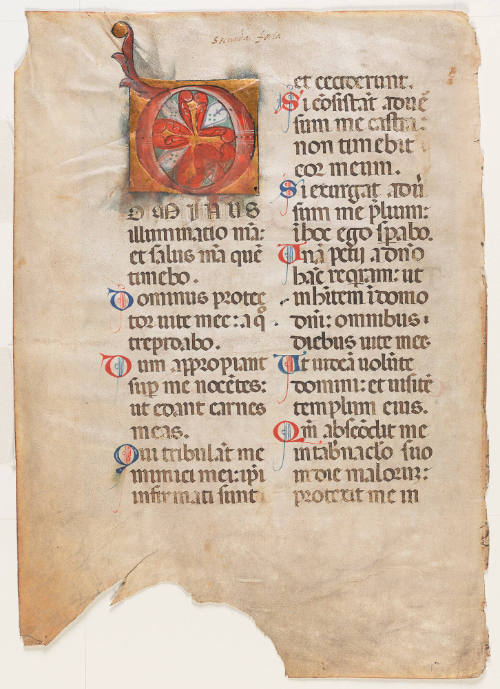 Secunda feria
DOMINUS
illuminatio m̄a:
et salus m̄a quē
timebo.
Dominus protec
tor uite mee: a q̊
trepidabo.
Dum appropiant
sup̱ me nocētes:
ut edant carnes
meas.
Qui tribulāt me
inimici mei: ip̄i
infirmati sunt
et ceciderunt.
Si cōsistāt aduē
sum me castra:
non timebit
cor meum.
Si exurgat adū
sum me p̄lium:
ī hoc ego sp̱abo.
Unā petii a dn̄o
hāc reqrram: ut
inhītem ī domo
dn̄i: omnibus
diebus uite mee
Ut uideā volūtē
domini: et uisitē
templum eius.
Qm̄ abscōdit me
in tab̄naclo suo
in die malorum:
protexit me in